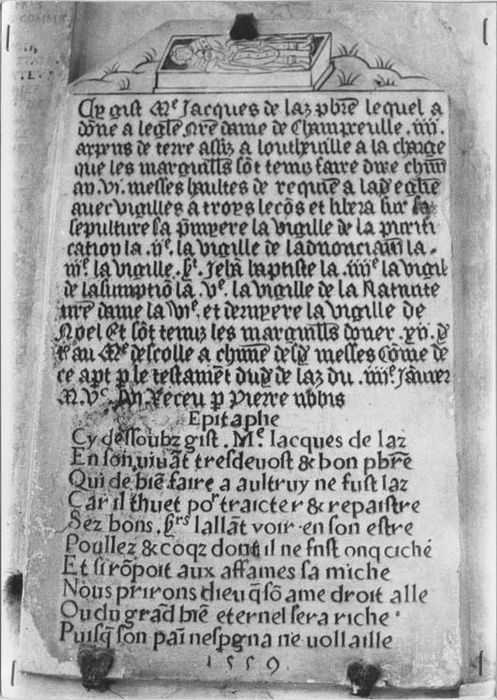 Cy gist Me Jacques de laz pbre lequel a
done a leglē Nrē dame de Champeville . iiii .
arpens de terre assiz a loutheuille a la charge
que les marguillrs sōt tenus faire dire chun
an . vi . messes haultes de requiē a lad eglē
auec vigilles a troys lecōs et libera sur sa
sepulture la p̄miere la vigille de la puriffi
cation la . iie . la vigille de ladnonciaōn la .
iiie . la vigille . st . Jehā baptiste la . iiiie la vigile
de lasumptiō la . ve . la vigille de la Natiuite
nrē dame la vie . et derniere la vigille de
Noel Et sōt tenuz les marguillrs doner . xii . d
au Me descolle a chune desd messes Cōme de
ce apt p le testamēt dud de laz du . iiiie . Jānuier
M. Vc. Receu p Pierre
Epitaphe
Cy dessoubz gist . Me . Iacques de laz
En son uiuāt tresdeuost & bon pbrē
Qui de biē faire a aultruy ne fust laz
Car il thuet por traicter & repaistre
Sez bons . srs lallāt voir en son estre
Poullez & coqz dont il ne fust onq ciché
Et si rōpoit aux affames sa miche
Nous prirons dieu q̄ sō ame droit alle
Ou du grād biē eternel sera riche
Puisq̄ son paī nespgna ne uollaille
1559